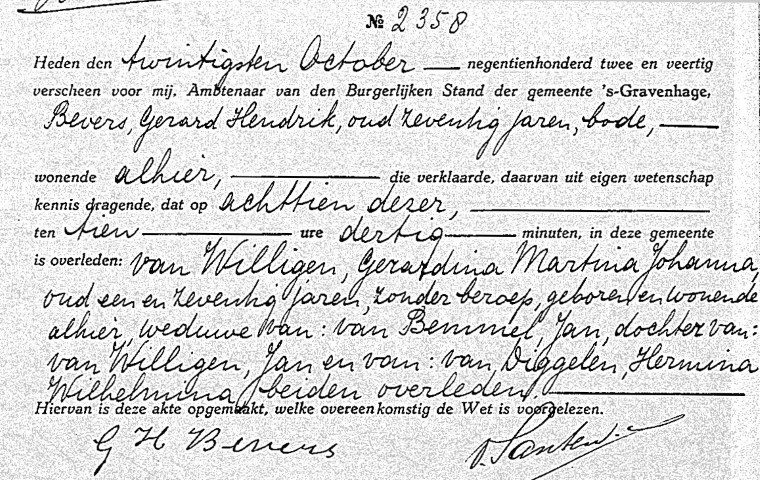 № 2358
Heden den twintigsten October — negentienhonderd twee en veertig
verscheen voor mij, Ambtenaar van den Burgerlijken Stand der gemeente 's-Gravenhage,
Bevers, Gerard Hendrik, oud zeventig jaren, bode, —
wonende alhier, — die verklaarde, daarvan uit eigen wetenschap
kennis dragende, dat op achttien dezer, —
ten tien — ure dertig — minuten, in deze gemeente
is overleden: van Willigen, Gerardina Martina Johanna,
oud een en zeventig jaren, zonder beroep, geboren en wonende
alhier, weduwe van: van Bemmel, Jan, dochter van:
van Willigen, Jan en van: van Diggelen, Hermina
Wilhelmina, beiden overleden. —
Hiervan is deze akte opgemaakt, welke overeenkomstig de Wet is voorgelezen.
G H Bevers v. Santen